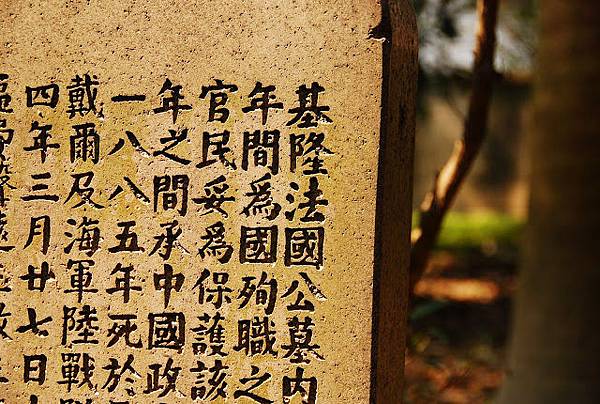 基隆法國公墓內
年間爲國殉職之
官民妥爲保護該
年之間承中國政
一八八五年死於
戴爾及海軍陸戰
四年三月廿七日